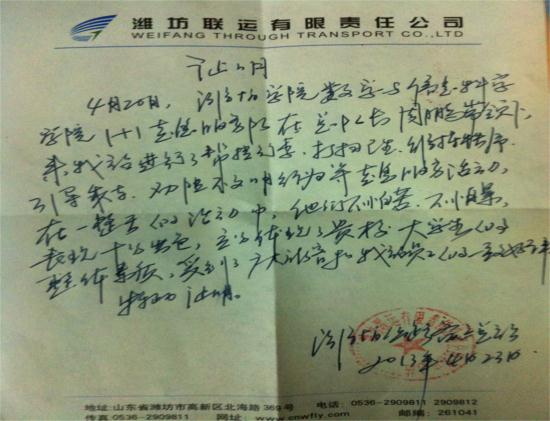 潍坊联运有限责任公司
WEIFANG THROUGH TRANSPORT CO.,LTD
证明
4月20日，潍坊学院数学与信息科学
学院1+1志愿服务队在总队长周鹏带领下，
来我站进行了帮扶、打扫卫生、维持秩序
引导乘车、劝阻不文明行为等志愿服务活动，
在一整天的活动中，他们不怕苦、不怕累，
表现十分出色，充分体现了贵校大学生的
整体素质，受到了广大旅客和我站员工的一致好评
特此证明。
2013年4月23日
地址:山东省潍坊市高新区北海路369号 电话: 0536-2909811 2909812
传真0536-2909811 网址: www.cnwfly.com 邮编: 261041